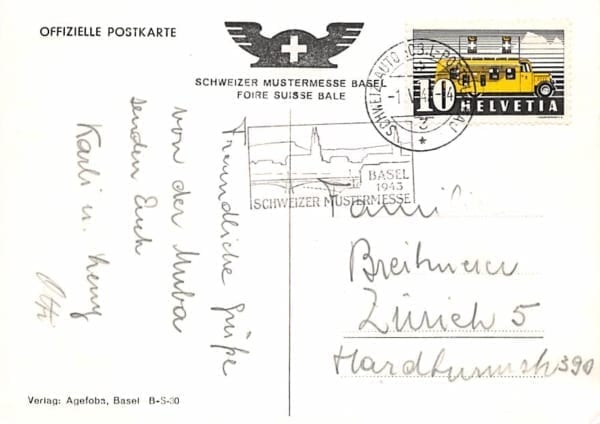 OFFIZIELLE POSTKARTE
SCHWEIZER MUSTERMESSE BASEL
FOIRE SUISSE BALE
10 HELVETIA
BASEL
1943
SCHWEIZER MUSTERMESSE
Freundliche Grüße
von der Muba
senden Euch
Karli u.
Familie
Zürich 5
Hardturmstr. 390
Verlag: Agefoba, Basel B-S-30